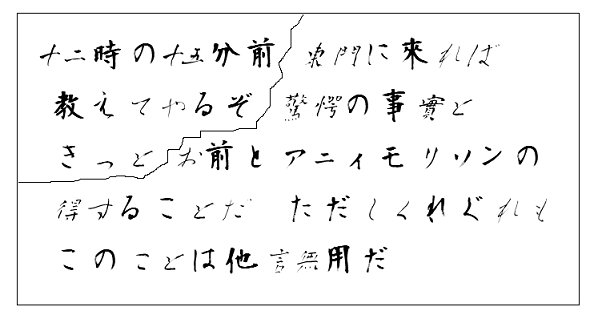 十二時の十五分前 東門に來れば
教えてやるぞ 驚愕の事實と
きっと お前とアニィモリソンの
得することだ ただしくれぐれも
このことは他言無用だ